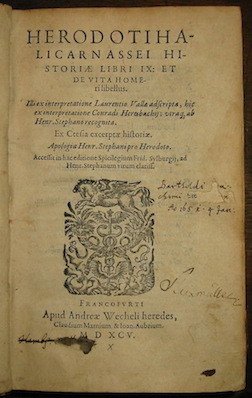 HERODOTI HA-
LICARNASSEI HI-
STORIÆ LIBRI IX: ET
DE VITA HOME-
ri libellus.
Illi ex interpretatione Laurentii Vallæ adscripta, hic
ex interpretatione Conradi Heresbachij: vtraq; ab
Henr. Stephano recognita.
Ex Ctesia excerptæ historiæ.
Apologia Henr. Stephani pro Herodoto.
Accessit in hac editione Spicilegium Frid. Sylburgij, ad
Henr. Stephanum virum clariss.
Bartholdi
FRANCOFVRTI
Apud Andreæ Wecheli heredes,
Claudium Marnium & Ioan. Aubrium.
M D XCV.
X